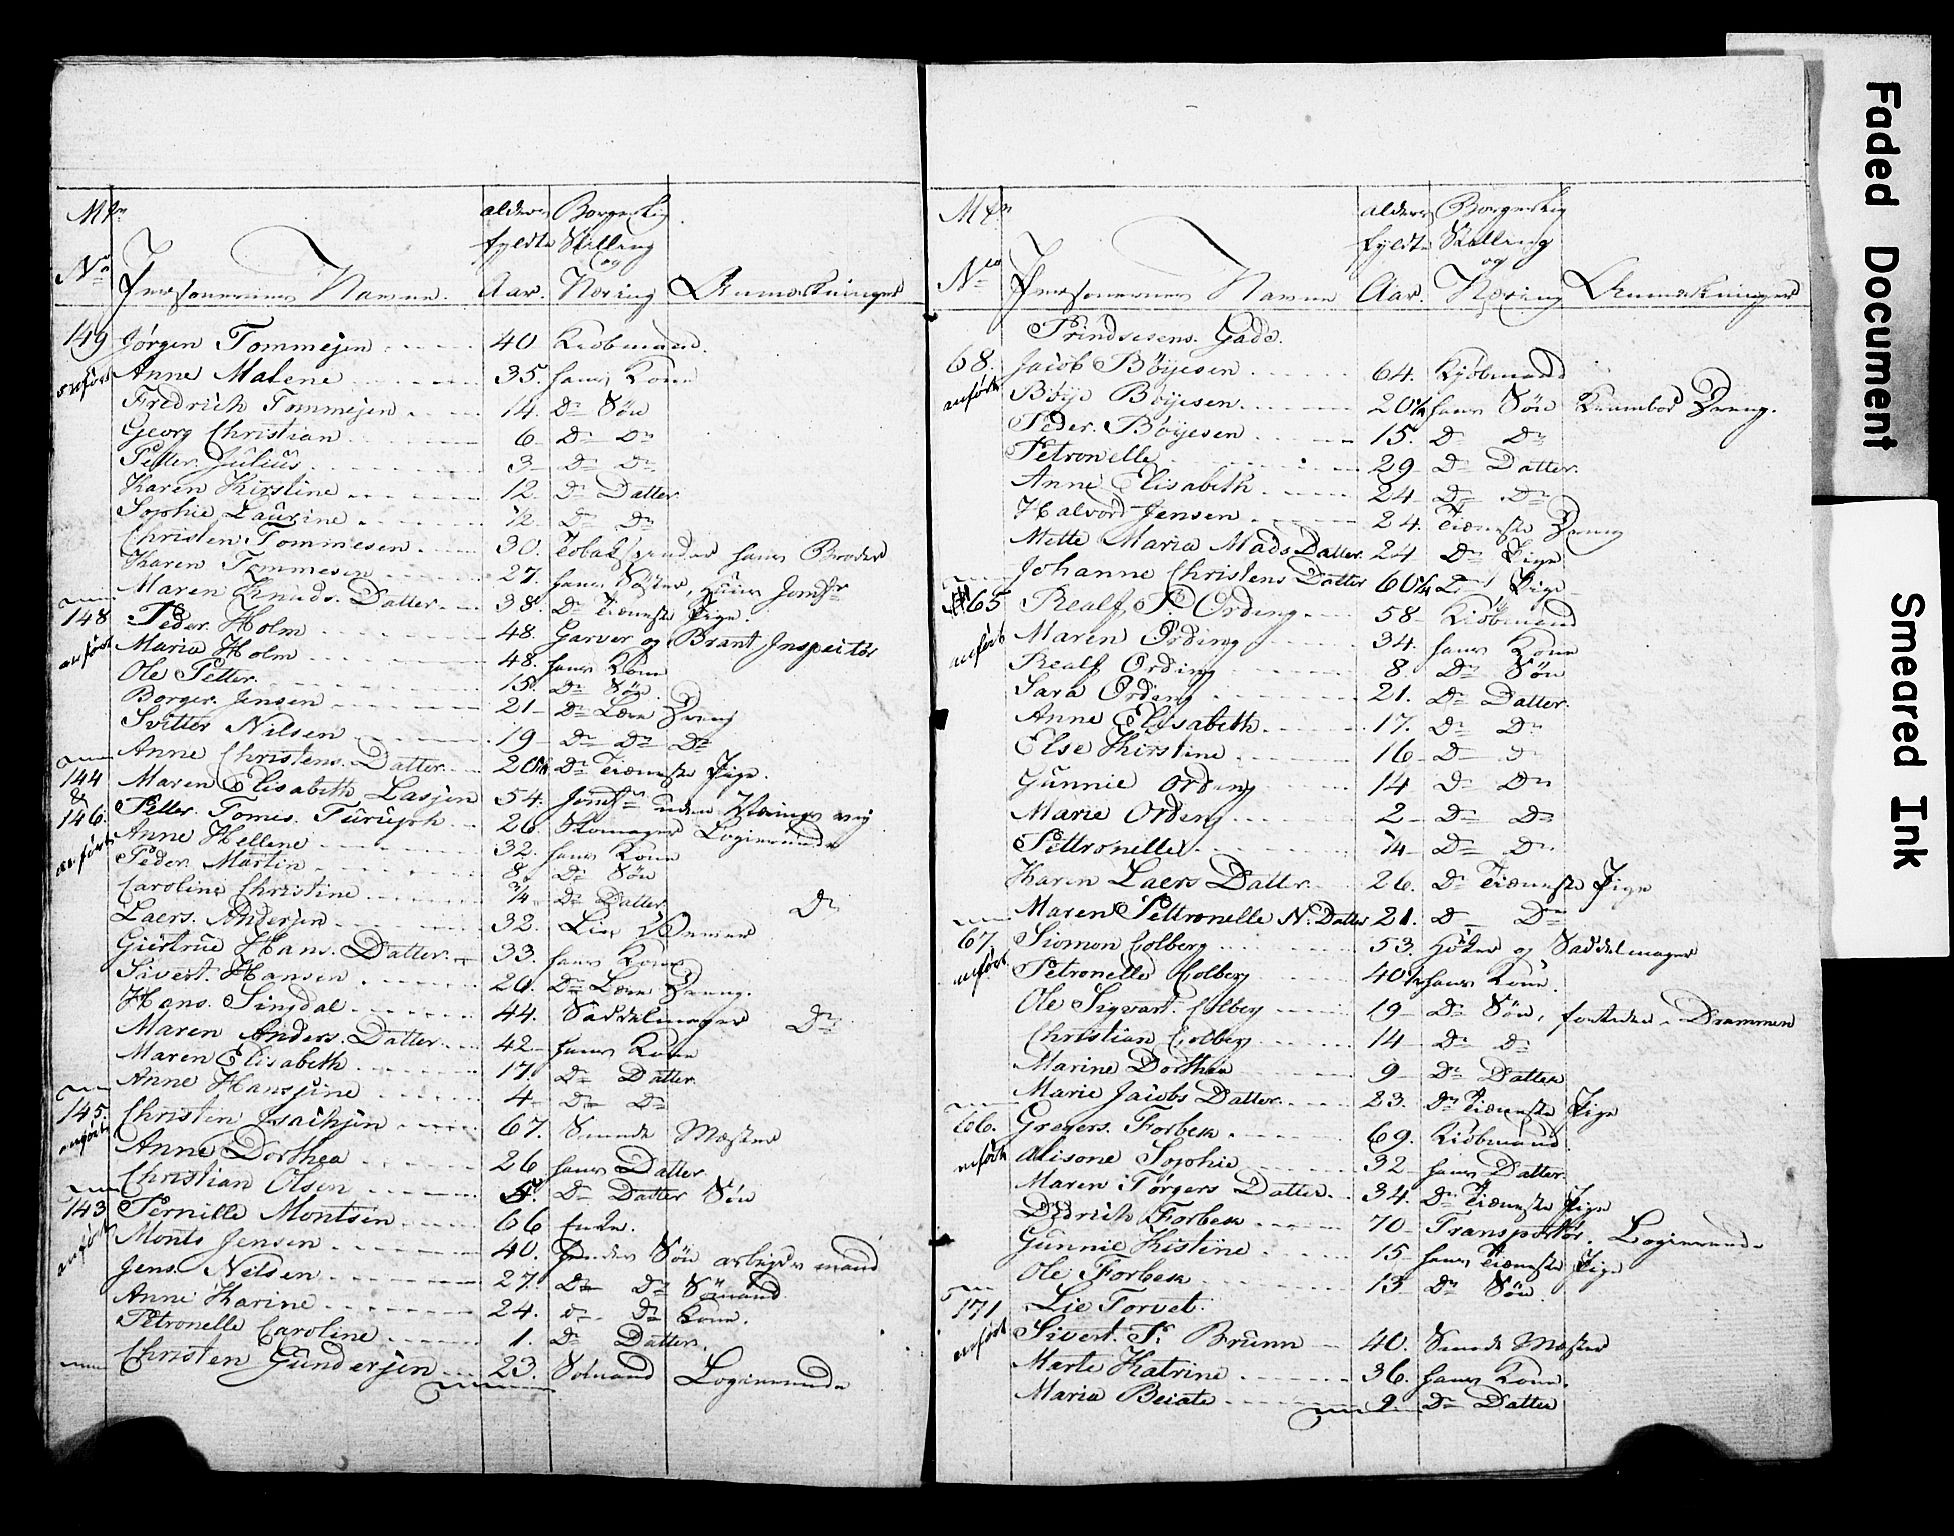 Mtr. No
Personernes Navne.
Alders fyldte Aar.
Borgerlig Stilling og Næring
Anmærkninger
149 Jørgen Tommesen 40 Kiøbmand.
anført Anne Malene 35. hans Kone
Fredrich Tommesen 14. Do Søn
Georg Christian 6 Do Do
Petter Julius 3 Do Do
Karen Kirstine 12 Do Datter
Sophie Laurine 1/2 Do Do
Christen Tommesen 30. Tobakspinder hans Broder
Karen Tommesen 27. hans Søster, Jomfr
Maren Knuds. Datter 38. Do Tieneste Pige.
148 Peder Holm 48. Garver og Brant Inspecter
anført Maria Holm 48. hans Kone
Ole Petter 15. Do Søn
Borger Jensen 21 Do Lære Dreng
Svitter Nilsen 19 Do Do Do
Anne Christens. Datter 20 Do Tieneste Pige.
144 Maren Elisabeth Lassen 54. Jomfr uden Nærings vej
& 146. Petter Tomes. 26 Skomager Logierende
anført Anne Hellene 32. hans Kone
Peder Martin 8. Do Søn
Caroline Christine 3/4 Do Datter
Laers. Andersen 32. Do
Giertrue Hans. Datter 33. hans Kone
Sivert Hansen 20. Do Lære Dreng.
Hans. Singdal 44. Saddelmager Do
Maren Anders. Datter 42 hans Kone
Maren Elisabeth 17. Do Datter
Anne Hansine 4 Do Do
145. Christen Isachsen 67. Smede Mæster
anført Anne Dorthea 26 hans Datter
Christian Olsen 5. Do Datter Søn
143 Pernille Montsen 66 Enke.
anført Monts Jensen 40. hendes Søn arbeids mand
Jens. Nilsen 27. Do Do Sømand
Anne Karine 24. Do Do Kone.
Petronelle Caroline 1. Do Datter.
Christen Gundersen 23. Sømand Logierende
Mtr. No
Personernes Navne
Alders fyldte Aar.
Borgerlig Stilling og Næring
Anmærkninger
Prindsesens Gade.
68. Jacob Böyesen 64. Kjöbmand
anført Böye Böyesen 20 1/2 hans Søn Krambod Dreng.
Peder Böyesen 15. Do Do
Petronelle 29 Do Datter
Anne Elisabeth 24 Do Do
Halvord Jensen 24. Tieneste Dreng
Mette Maria Mads Datter 24 Do Pige
Johanne Christens Datter 60 1/4 Do Pige
65 Realf P. Ording 58 Kiöbmand
anført Maren Ording 34. hans Kone
Realf Ording 8. Do Søn
Sara Ording 21. Do Datter
Anne Elisabeth 17. Do Do
Else Kirstine 16 Do Do
Gunnie Ording 14 Do Do
Marie Ording 2 Do Do
Pettronelle 1/4 Do Do
Karen Laers Datter 26. Do Tieneste Pige
Maren Pettronelle N. Datter 21. Do Do
67 Siomon Colberg 53. Höker og Saddelmager
anført Petronelle Colberg 40 hans Kone.
Ole Sigvart Colberg 19 Do Søn, Drammen
Christian Colberg 14 Do Do
Marine Dorthea 9 Do Datter
Marie Jacobs Datter 23. Do Tieneste Pige
66. Gregers. Forbech 69. Kiöbmand
anført Alisone Sophie 32 hans Datter
Maren Törgers Datter 34. Do Tieneste Pige
Didrich Forbech 70 Transportör. Logierende
Gunnie Kistine 15 hans Tieneste Pige
Ole Forbech 13 Do Søn
Lie Torvet.
171 anført Sivert P. Brunn 40. Smede Mæster
Marte Katrine 36. hans Kone.
Maria Beiate 9 Do Datter
Faded Document
Smeared Ink